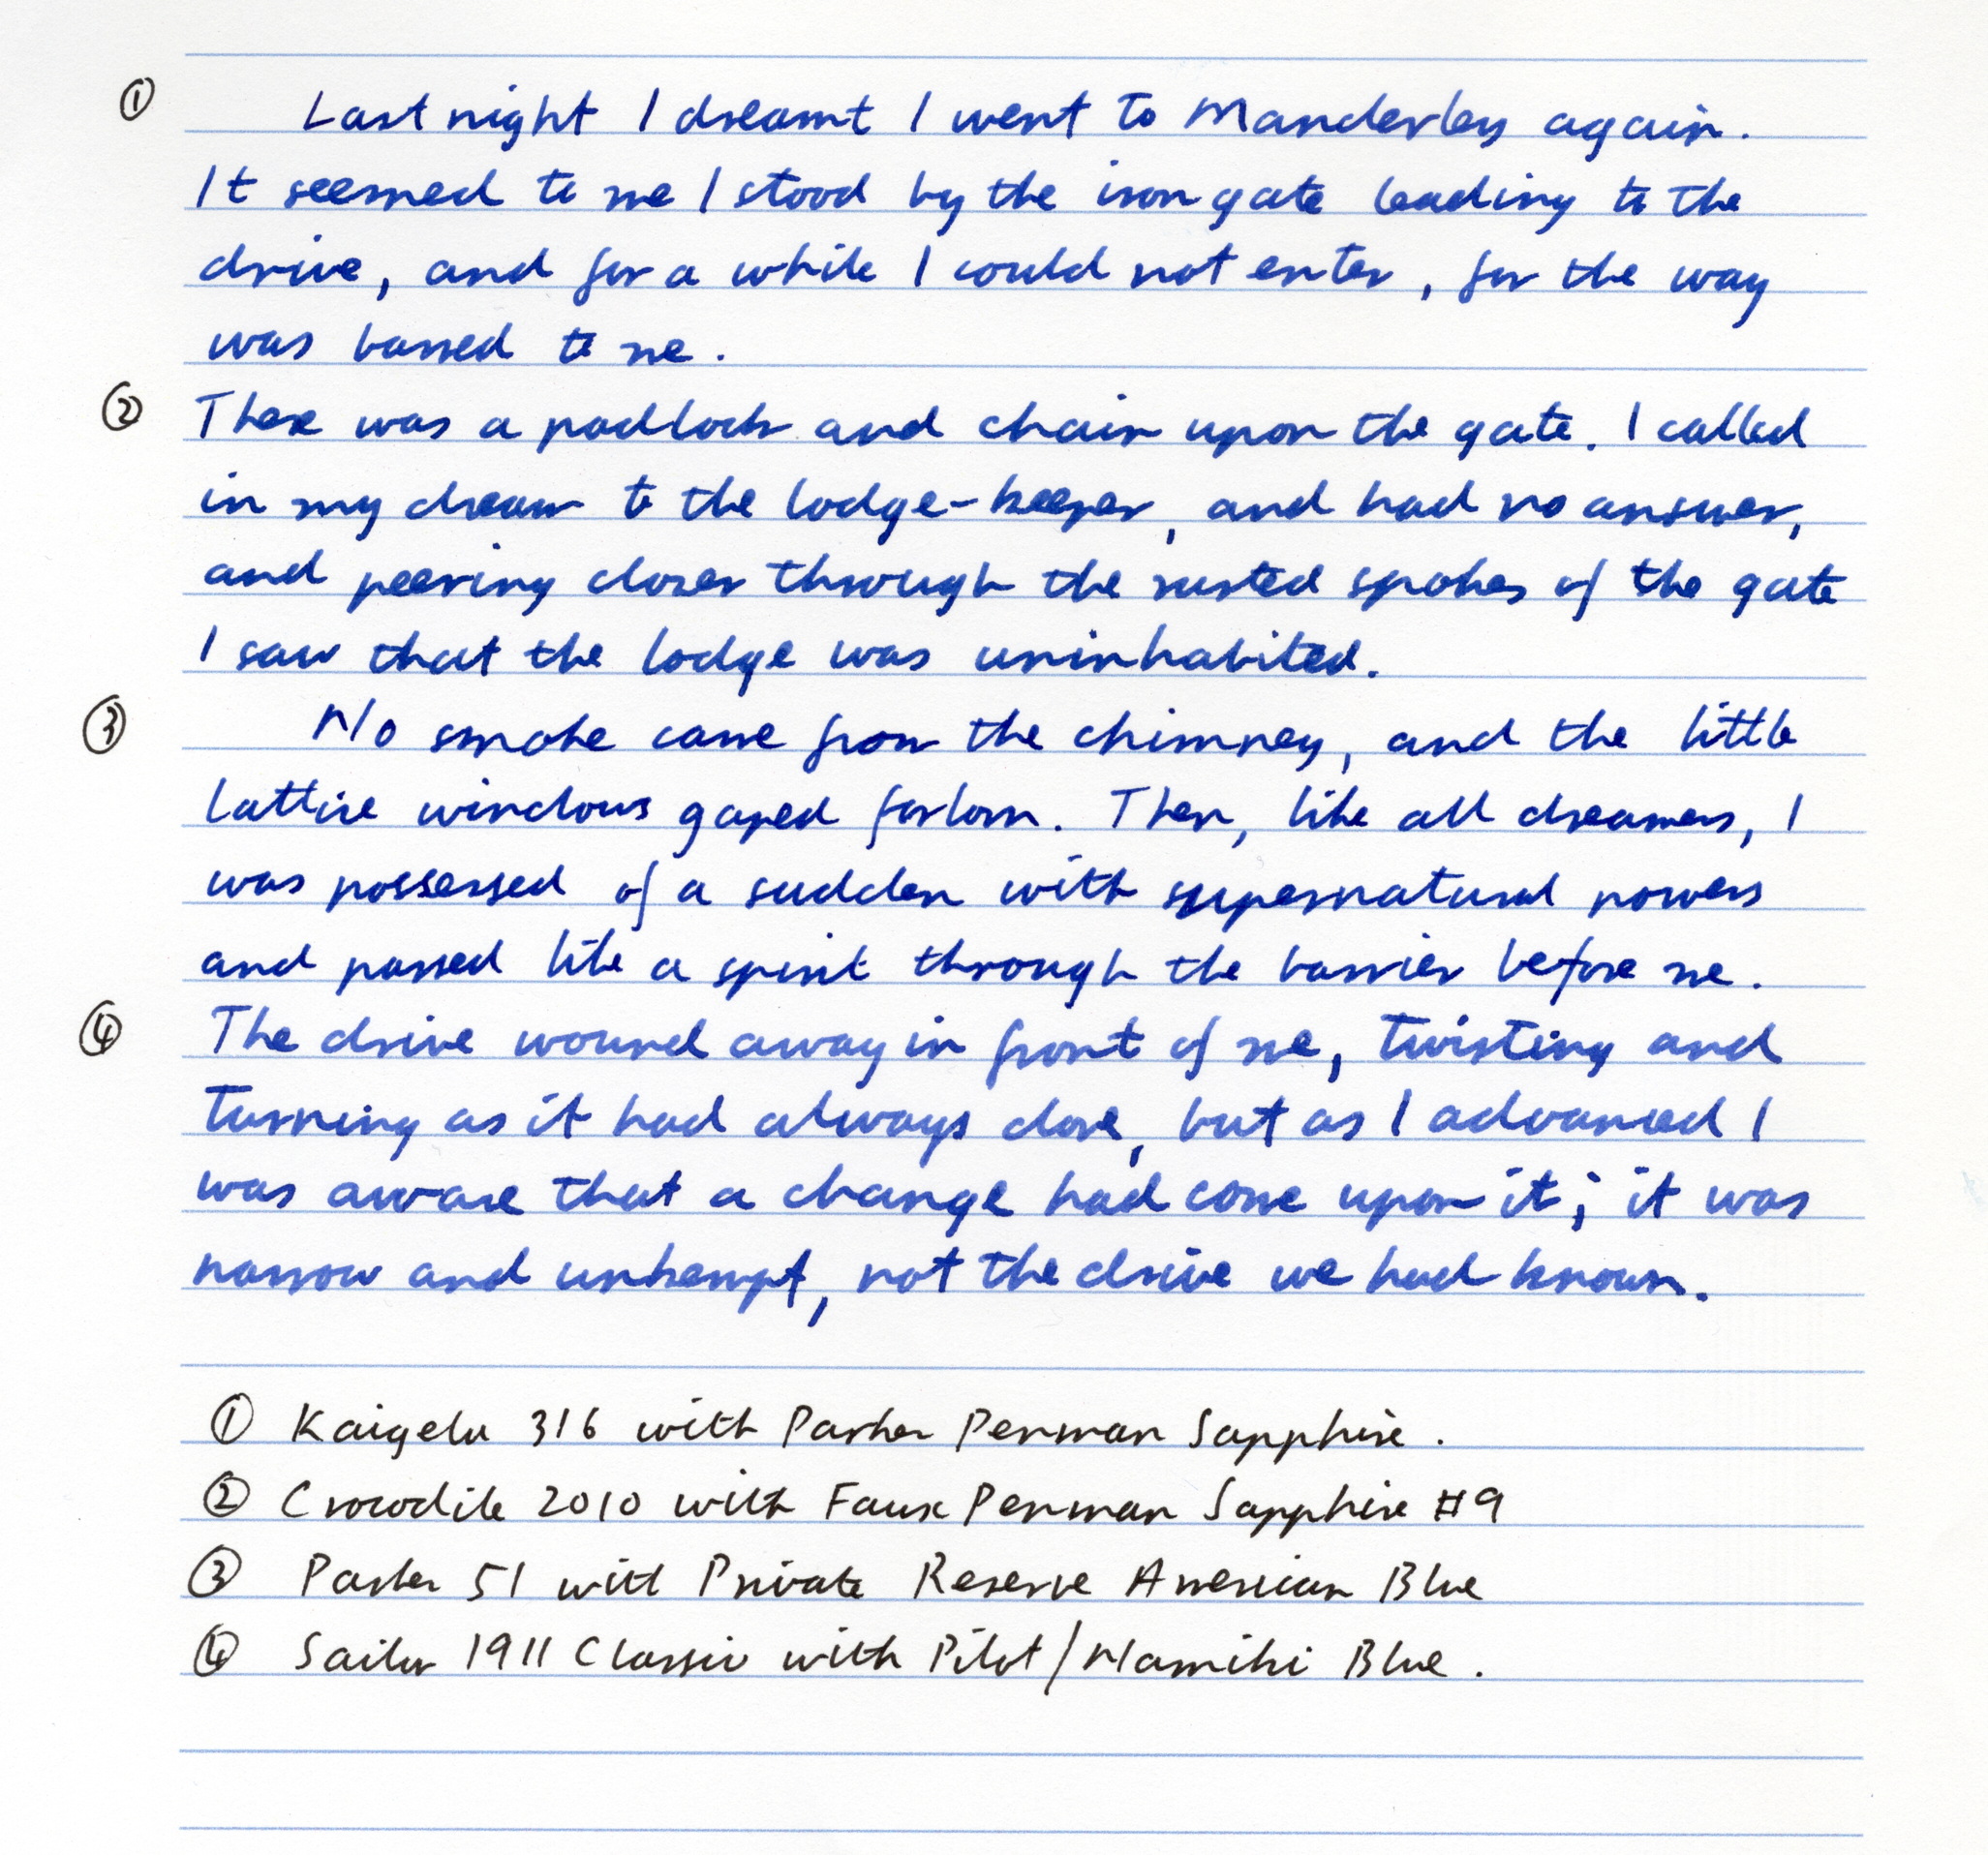 ① Last night I dreamt I went to Manderley again.
It seemed to me I stood by the iron gate leading to the
drive, and for a while I could not enter, for the way
was barred to me.
② There was a padlock and chain upon the gate. I called
in my dream to the lodge-keeper, and had no answer,
and peering closer through the rusted spokes of the gate
I saw that the lodge was uninhabited.
③ No smoke came from the chimney, and the little
lattice windows gaped forlorn. Then, like all dreamers, I
was possessed of a sudden with supernatural powers
and passed like a spirit through the barrier before me.
④ The drive wound away in front of me, twisting and
turning as it had always done, but as I advanced I
was aware that a change had come upon it; it was
narrow and unkempt, not the drive we had known.
① Kaigelu 316 with Parker Penman Sapphire.
② Crocodile 2010 with Faux Penman Sapphire #9
③ Parker 51 with Private Reserve American Blue
④ Sailor 1911 Classic with Pilot/Namiki Blue.